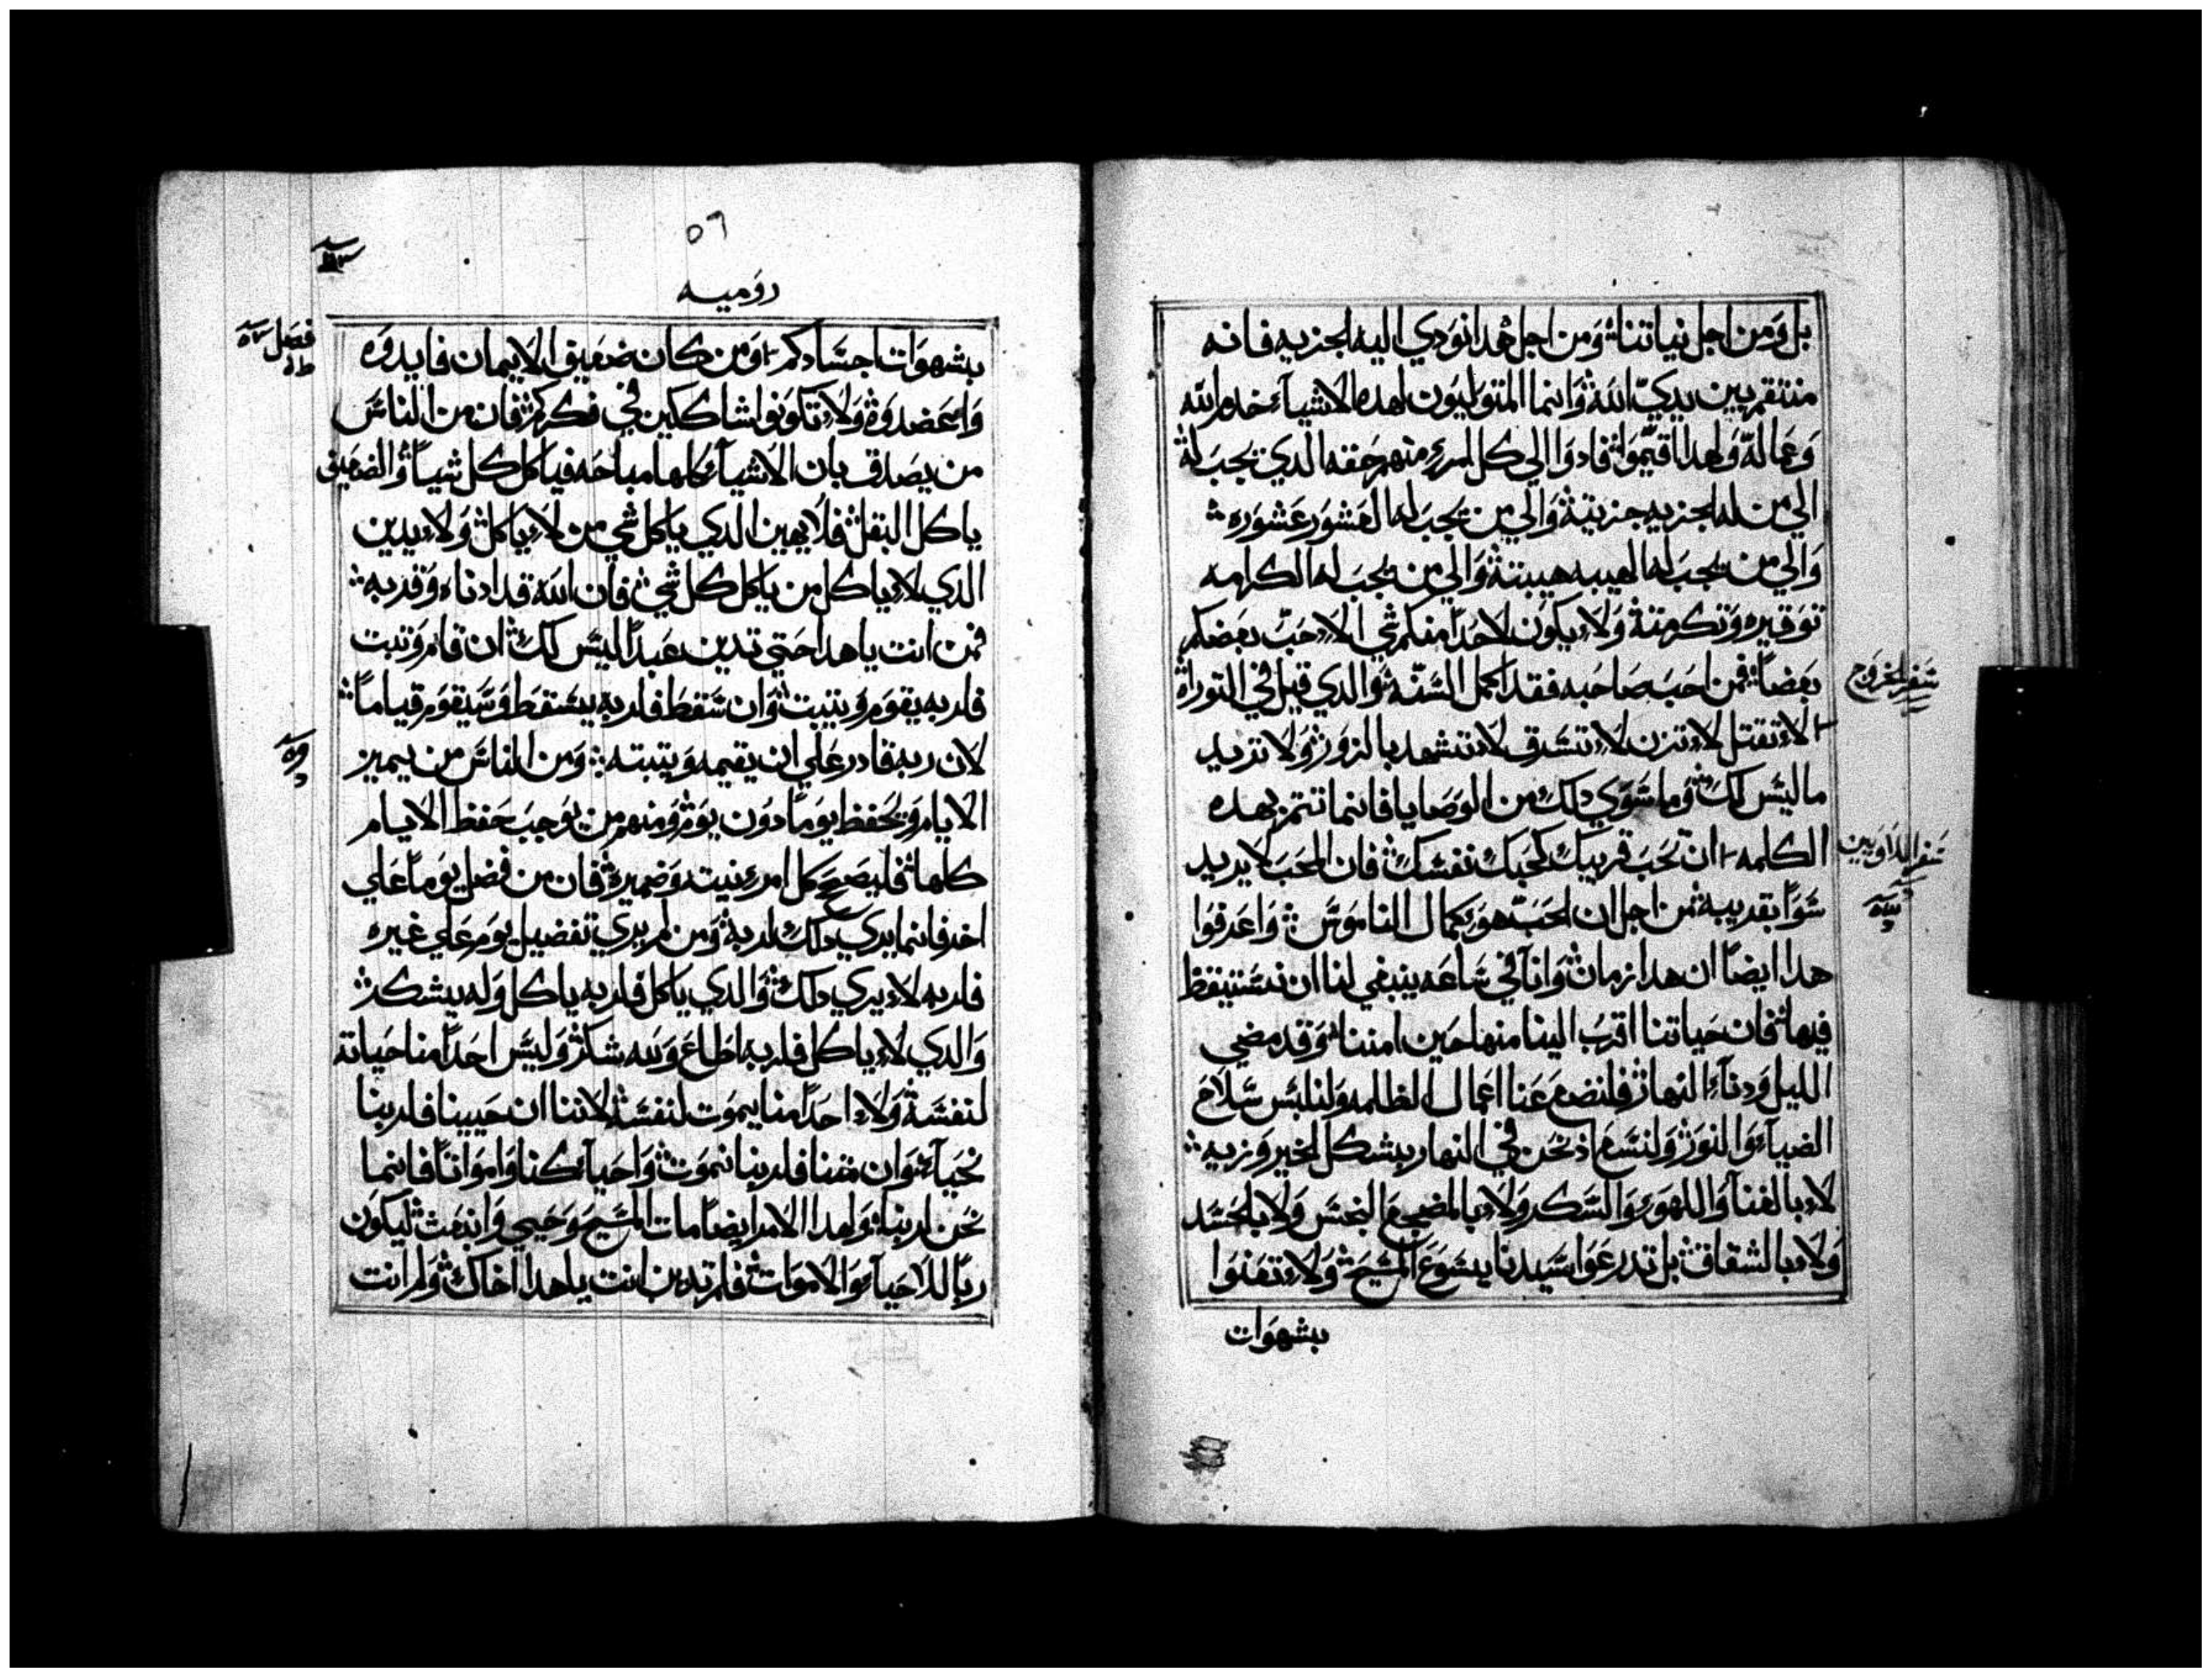 بل ومن اجل نياتنا ومن اجل هدا نودي اليه الجزيه فانه
منتقم بين يدي الله وانما المتوليون لهده الاشياء خدم الله
وعماله ولهدا اقيموا فادوا الي كل امرء منهم حقه الدي يجب له
الي من له الجزيه جزيته والي من يجب له العشور عشوره
والي من يجب له الهيبه هيبته والي من يجب له الكرامه
توقيره وتكرمته ولا يكون لاحدا منكم شي الا حب بعضكم
بعضا فمن احب صاحبه فقد اكمل السنه والدي قيل في التوراه
لا تقتل لا تزن لا تسرق لا تشهد بالزور ولا تريد
ما ليس لك وما سوي دلك من الوصايا فانما تتم بهده
الكلمه ان تحب قريبك كحبك نفسك فان المحب لا يريد
سوا بقريبه من اجل ان الحب هو كمال الناموس واعرفوا
هدا ايضا ان هدا زمان وانا في ساعه ينبغي لنا ان نستيقظ
فيها فان حياتنا اقرب الينا منها حين امننا وقد مضي
الليل ودناء النهار فلنضع عنا اعمال الظلمه ولنلبس سلاح
الضياء والنور ولنسع ادنحن في النهار بشكل الخير وزيه
لا بالغنا واللهو والسكر ولا بالمضجع النجس ولا بالحسد
ولا بالشقاق بل تدرعوا سيدنا يسوع المسيح ولا تعنوا
بشهوات
سفر الخروج
سفر اللاويين
٥٦
روميه
فصل
بشهوات اجسادكم ومن كان ضعيف الايمان فايدوه
واعضدوه ولا تكونوا شاككين في فكركم فان من الناس
من يصدق بان الاشياء كلها مباحه فياكل كل شيا والضعيف
ياكل البقل فلا يهين الدي ياكل شي من لا ياكل ولا يدين
الدي لا ياكل من ياكل كل شي فان الله قد ادناه وقربه
فمن انت يا هدا حتي تدين عبدا ليس لك ان قام وتبت
فلربه يقوم ويتبت وان سقط فلربه يسقط وسيقوم قياما
لان ربه قادر علي ان يقيمه ويتبته ومن الناس من يميز
الايام ويحفظ يوما دون يوم ومنهم من يوجب حفظ الايام
كلها فليصحح كل امرء نيته وضميره فان من فضل يوما علي
اخر فانما يري دلك لربه ومن لم يري تفضيل يوم علي غيره
فلربه لا يري دلك والدي ياكل فلربه ياكل وله يشكر
والدي لا ياكل فلربه اطاع ولله شكر وليس احدا منا حياته
لنفسه ولا احدا منا يموت لنفسه لاننا ان حيينا فلربنا
نحياء وان متنا فلربنا نموت واحياء كنا وامواتا فانما
نحن لربنا ولهدا الامر ايضا مات المسيح وحيي وانبعث ليكون
ربا للاحياء والاموات فلم تدين انت يا هدا اخاك ولم انت